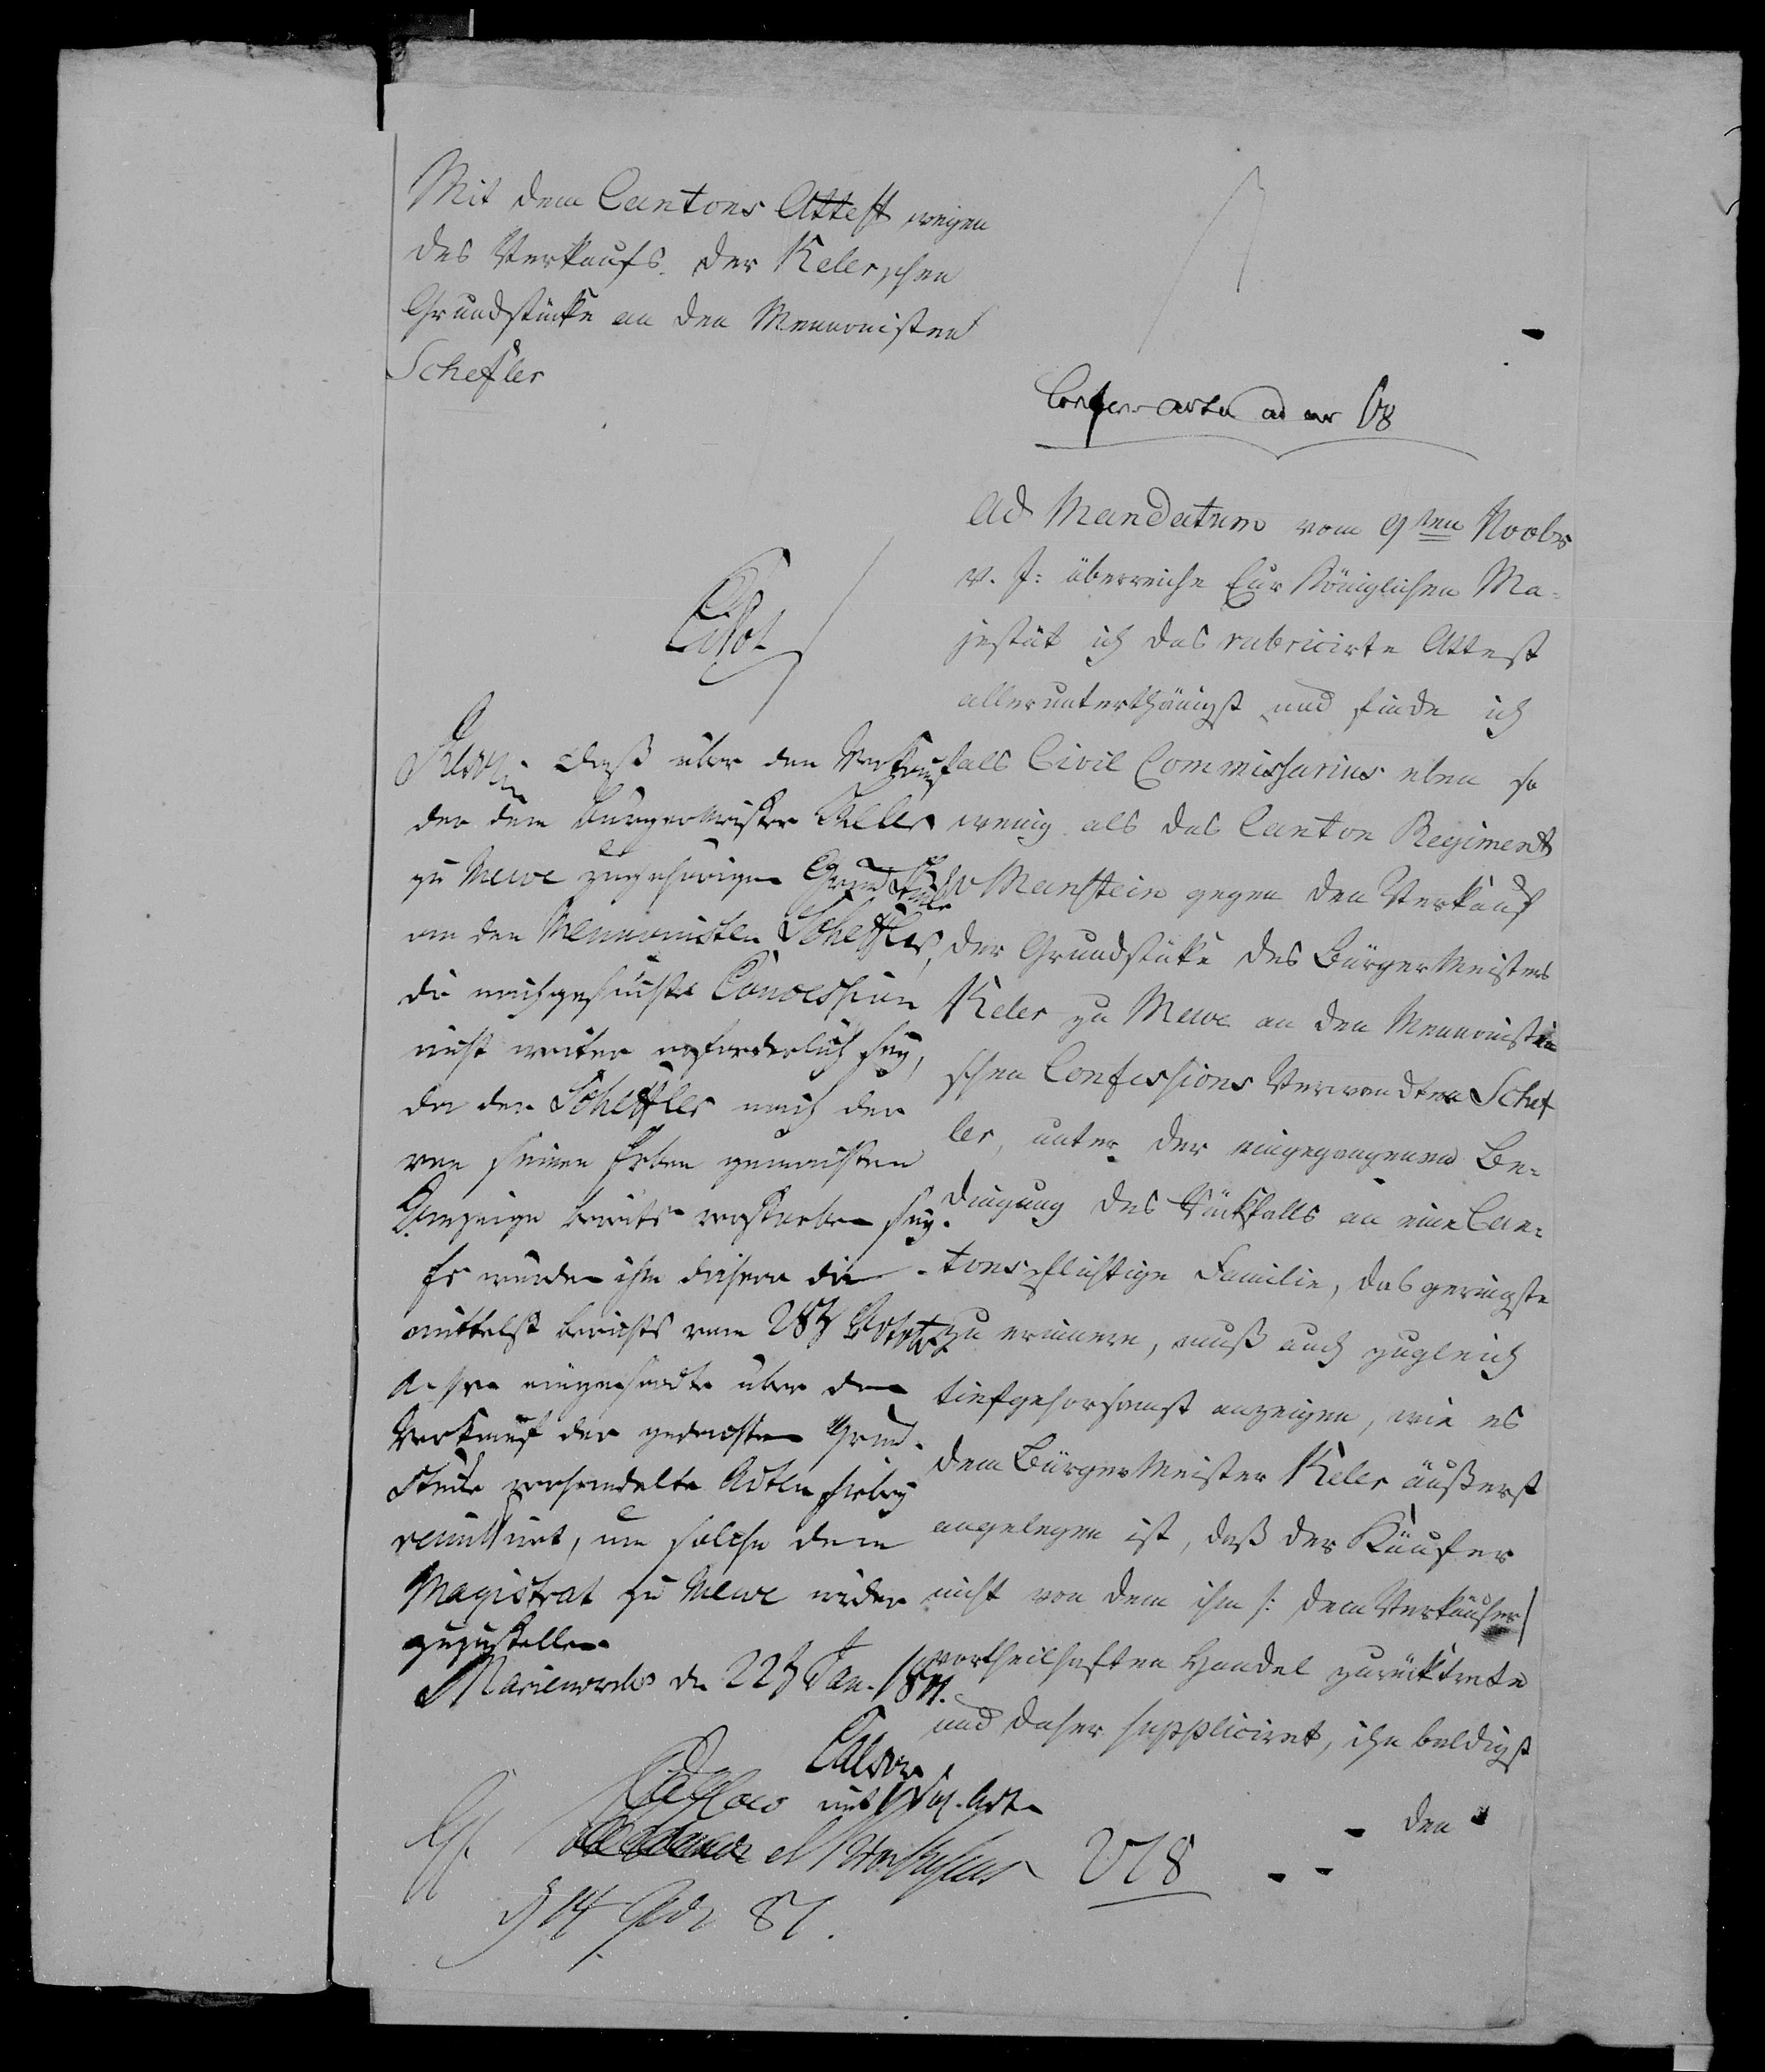 Mit dem Cantons Attest wegen
des Verkaufs der Kelerschen
Grundstücke an den Mennonisten
Schefler
ad Mandatum vom 9ten Novbr
v. J: überreiche Eur Königlichen Ma-
jestät ich das rubricirte Attest
allerunterthänigst und finde ich
als Civil Commissarius eben so
wenig als das Canton Regiment
v Manstein gegen den Verkauf
der Grundstüke des BürgerMeisters
Keler zu Mewe an den Mennonisti
schen Confessions Verwandten Schef
ler, unter der eingegangenen Be-
dingung des Rückfalls an eine Can-
tonspflichtige Familie, das geringste
zu erinnern, muß auch zugleich
tiefgehorsamst anzeigen, wie es
dem BürgerMeister Keler äußerst
angelegen ist, daß der Käufer
nicht von dem ihm /: dem Verkäufer
vortheilhaften Handel zurücktrete
und daher suppliciret, ihn baldigst
den
Cito!
daß über den Verkauf
der dem Bürgermeister Keller
zu Mewe zugehörigen Grundstücke
an den Mennonisten Scheffler,
die nachgesuchte Concession
nicht weiter erforderlich sey,
da der Scheffler nach der
von seinen Erben gemachten
Anzeige bereits verstorben sey.
Es werden ihm dahero die
mittelst Berichts vom 28t
eingesandte über den
Verkauf der gedachten Grund-
stücke verhandelte Acten hiebey
remittirt, um solche dem
Magistrat zu Mewe wieder
zuzustellen
Marienwerder den 22t Jan.